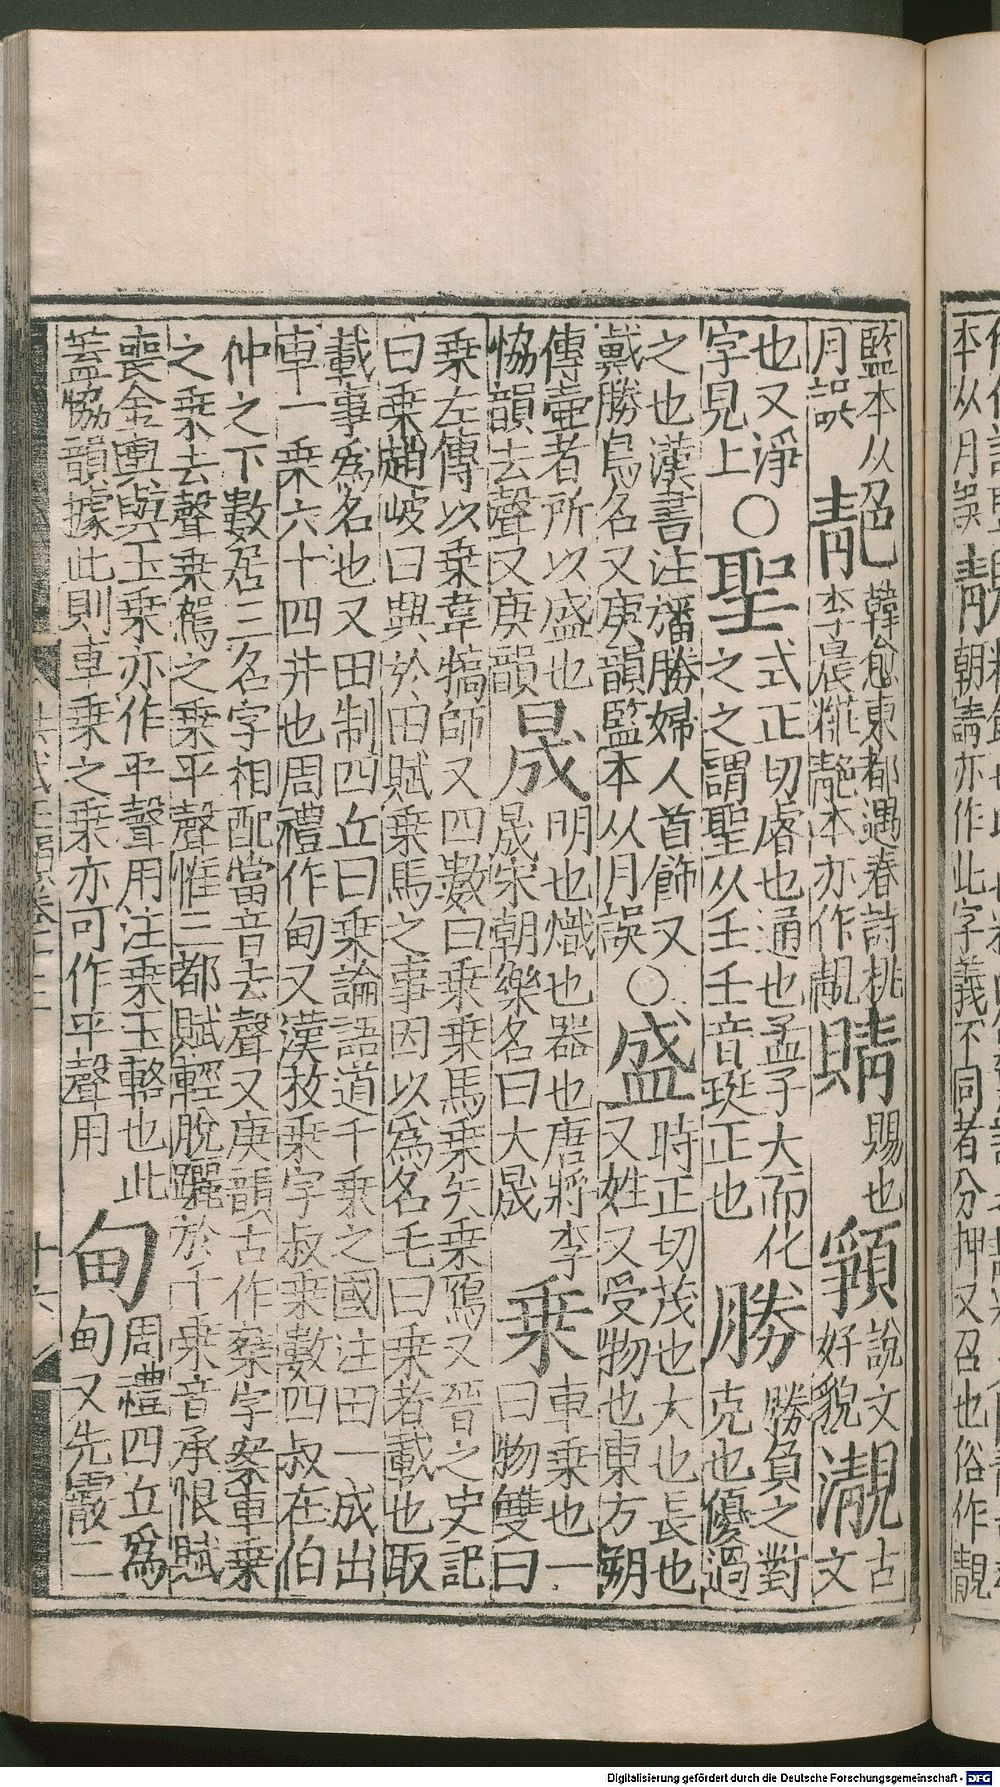 本从月誤 朝請亦作此字義不同者分押又召也俗作靚
監本从月誤 靘 韓愈東都遇春詩桃李晨粧靘本亦作靚 䝼 賜也 說文好貌 古文
也又淨字見上〇聖 式正切睿也通也孟子大而化之之謂聖从壬壬音珽正也 勝 勝負之對克也優過
之也漢書注旛勝婦人首飾又戴勝鳥名又庚韻監本从月誤〇盛 時正切茂也大也長也又姓又受物也東方朔
傳壷者所以盛也恊韻去聲又庚韻 晟 明也熾也器也唐將李晟宋朝樂名曰大晟 乗 車乗也一曰物雙曰
乗左傳以乗韋犒師又四數曰乗乗馬乗矢乗鴈又晉之史記曰乗趙岐曰興於田賦乗馬之事因以爲名毛曰乗者載也取
載事爲名也又田制四丘曰乗論語道千乗之國注田一成出車一乗六十四井也周禮作甸又漢枚乗字叔乗數四叔在伯
仲之下數居三名字相配當音去聲又庚韻古作椉字椉車乗之乗去聲乗駕之乗平聲惟三都賦輕脫躧於千乗音承恨賦
喪金輿與玉乗亦作平聲用注乗玉輅也此蓋恊韻據此則車乗之乗亦可作平聲用 甸 周禮四丘爲甸又先霰二
洪武正韻卷十三 十六
Digitalisierung gefördert durch die Deutsche Forschungsgemeinschaft - DFG